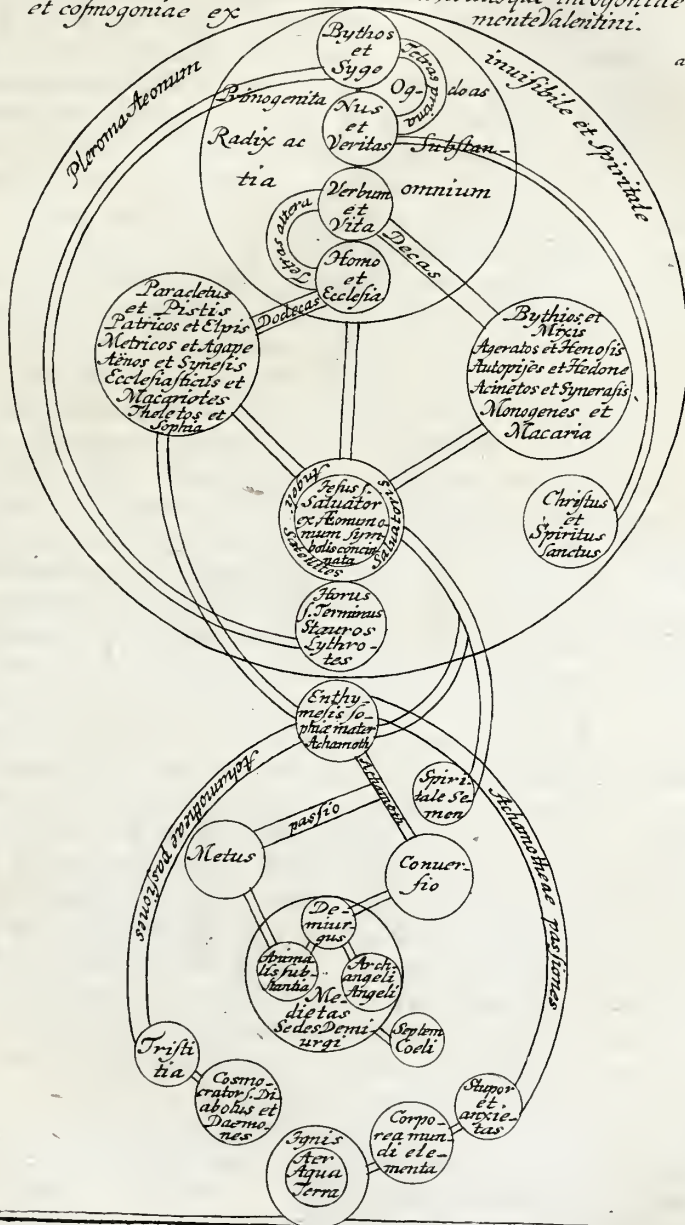 et cosmogoniae ex
mente Valentini.
a
Pleroma Aeonum
invisibile et Spiritale
Bythos
et
Syge
Tetras prima
Og-
doas
Primogenita
Nus
et
Veritas
Radix ac
Substan-
tia
omnium
Verbum
et
Vita
Tetras altera
Decas
Homo
et
Ecclesia
Dodecas
Paracletus
et Pistis
Patricos et Elpis
Metricos et Agape
Aenos et Synesis
Ecclesiasticus et
Macariotes
Theletos et
Sophia
Bythios et
Mixis
Ageratos et Henosis
Autopises et Hedone
Acinetos et Synerasis
Monogenes et
Macaria
Jesus s.
Salvator
ex Aeonum o-
mnium sym-
bolis concin-
nata
satellites
Salvatoris
Christus
et
Spiritus
sanctus
Horus
s. Terminus
Stauros
Lythro-
tes
Enthy-
mesis so-
phiae mater
Achamoth
Achamotheae passiones
Achamotheae passiones
Achamoth
Spiri-
tale Se-
men
passio
Metus
Conver-
sio
De-
miur-
gus
Anima-
lis sub-
stantia
Arch-
angeli
Angeli
Me-
dietas
Sedes Demi-
urgi
Septem
Coeli
Tristi
tia
Cosmo-
crator s. Di-
abolus et
Daemo-
nes
Stupor
et
anxie-
tas
Corpo-
rea mun-
di ele-
menta
Ignis
Aer
Aqua
Terra